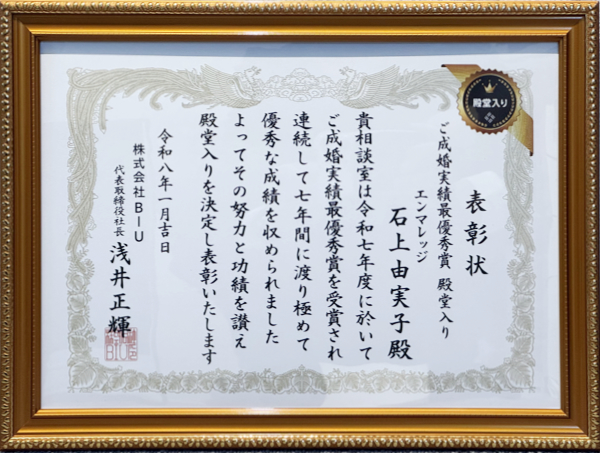 表彰状
ご成婚実績最優秀賞 殿堂入り
エンマレッジ
石上由実子殿
貴相談室は令和七年度に於いて
ご成婚実績最優秀賞を受賞され
連続して七年間に渡り極めて
優秀な成績を収められました
よってその努力と功績を讃え
殿堂入りを決定し表彰いたします
令和八年一月吉日
株式会社BIU
代表取締役社長 浅井正輝
殿堂入り